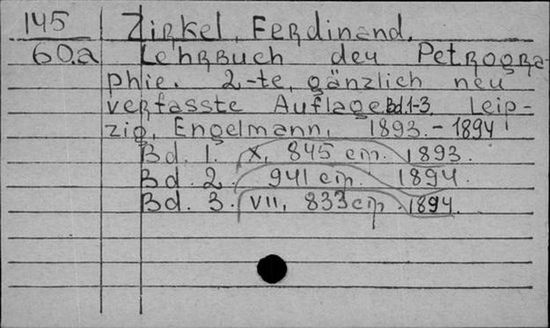 145 Zirkel, Ferdinand.
60.a Lehrbuch der Petrogra-
phie. 2-te, gänzlich neu
verfasste Auflage. Bd. 1-3. Leip-
zig, Engelmann, 1893. - 1894
Bd. 1. X, 845 стр. 1893.
Bd. 2. 941 стр. 1894.
Bd. 3. VII, 833 стр. 1894.